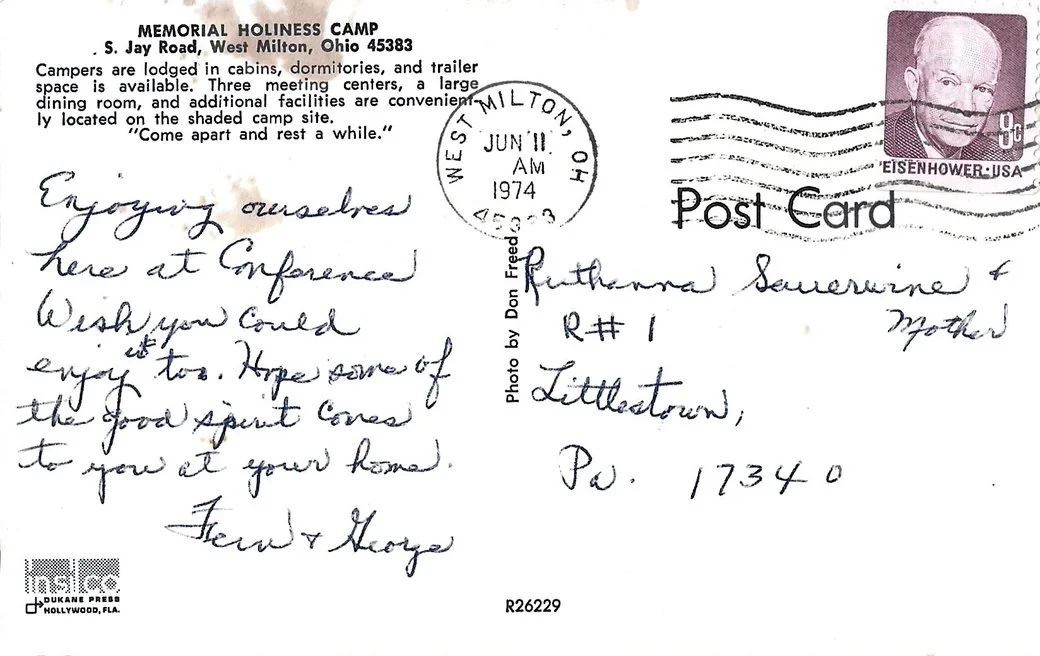 MEMORIAL HOLINESS CAMP
S. Jay Road, West Milton, Ohio 45383
Campers are lodged in cabins, dormitories, and trailer
space is available. Three meeting centers, a large
dining room, and additional facilities are convenient-
ly located on the shaded camp site.
"Come apart and rest a while."
WEST MILTON, OH
JUN 11
AM
1974
45383
8c
EISENHOWER·USA
Post Card
Enjoying ourselves
here at Conference
Wish you could
enjoy it too. Hope some of
the good spirit comes
to you at your home.
Fern & George
Photo by Don Freed
Ruthanna Sauerwine &
Mother
R# 1
Littlestown,
Pa. 17340
insco
DUKANE PRESS
HOLLYWOOD, FLA.
R26229